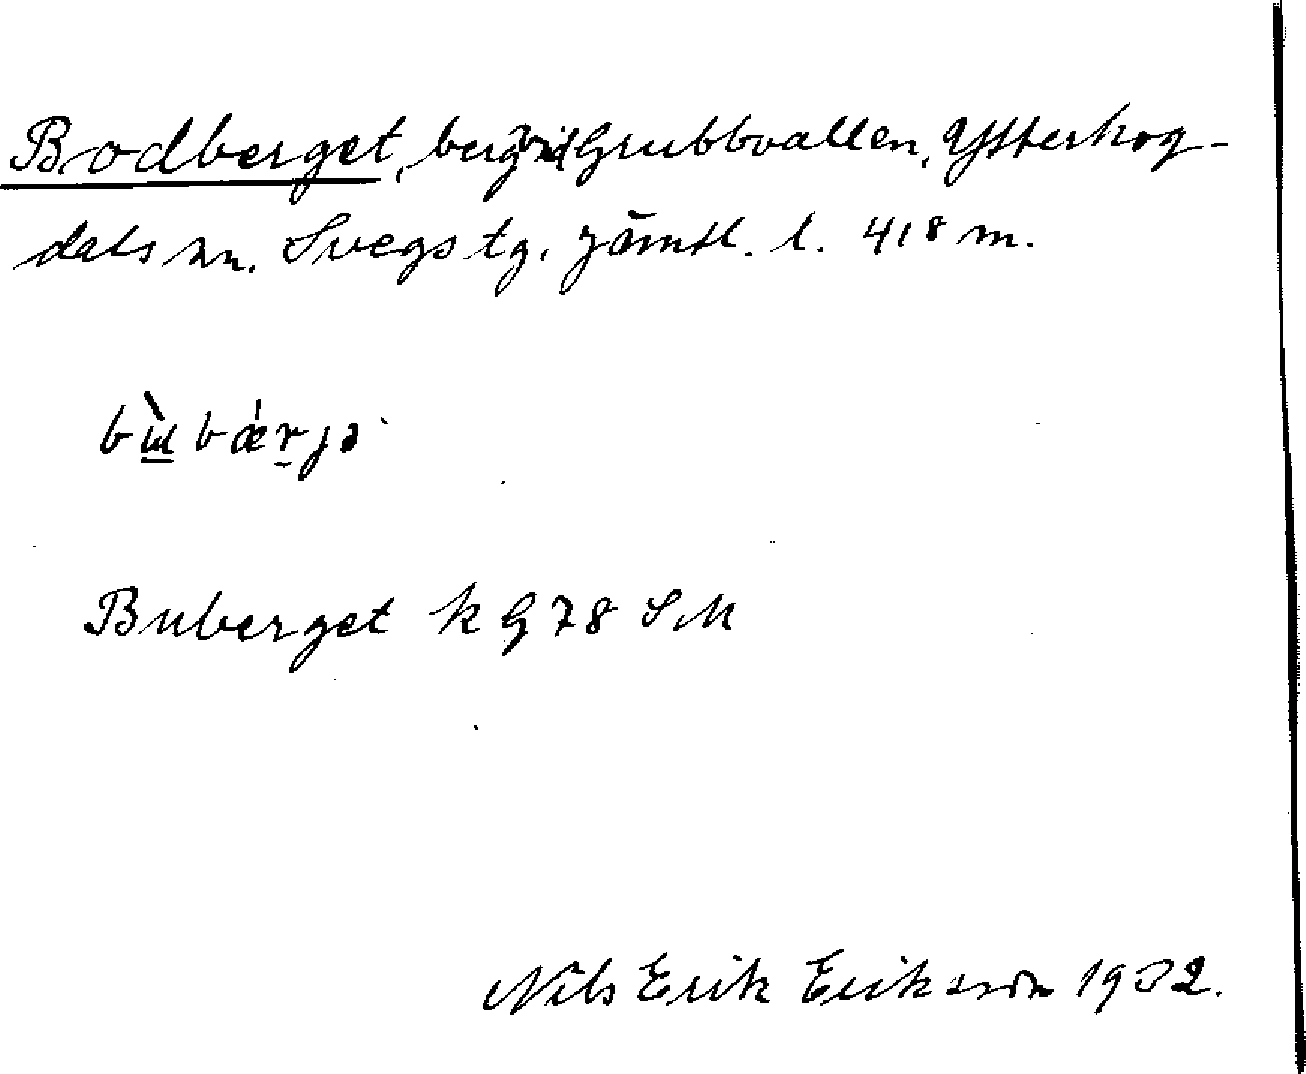 Bodberget, berg vid Grubbvallen, Ytterhog-
dals sn. Svegs tg. Jämtl. l. 418 m.
bɯ̀bǽrjə
Buberget k G 78 SM
Nils Erik Eriksson 1932.